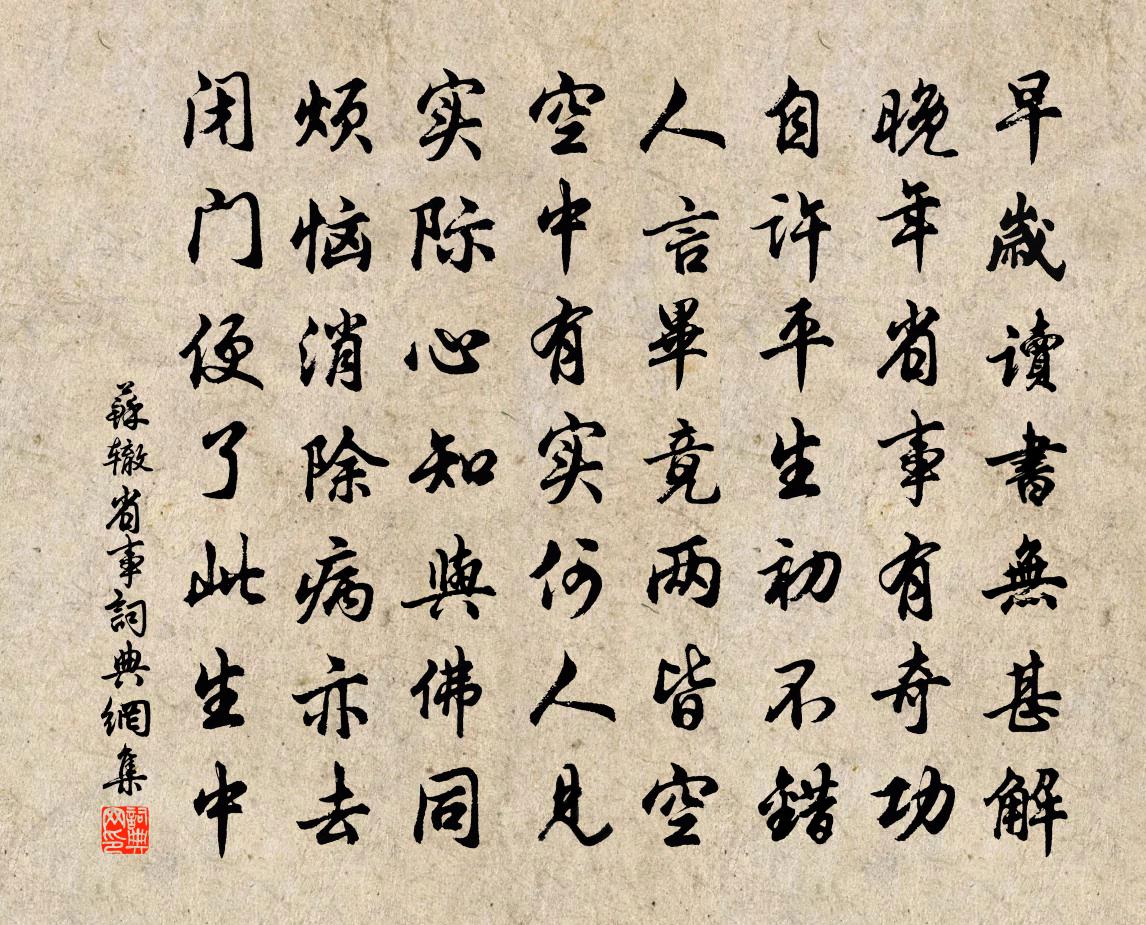 早歲读書無甚解
晚年省事有奇功
自许平生初不錯
人言畢竟两皆空
空中有实何人見
实际心知與佛同
烦恼消除病亦去
闭门便了此生中
蘇辙省事詞典網集
詞典
网印